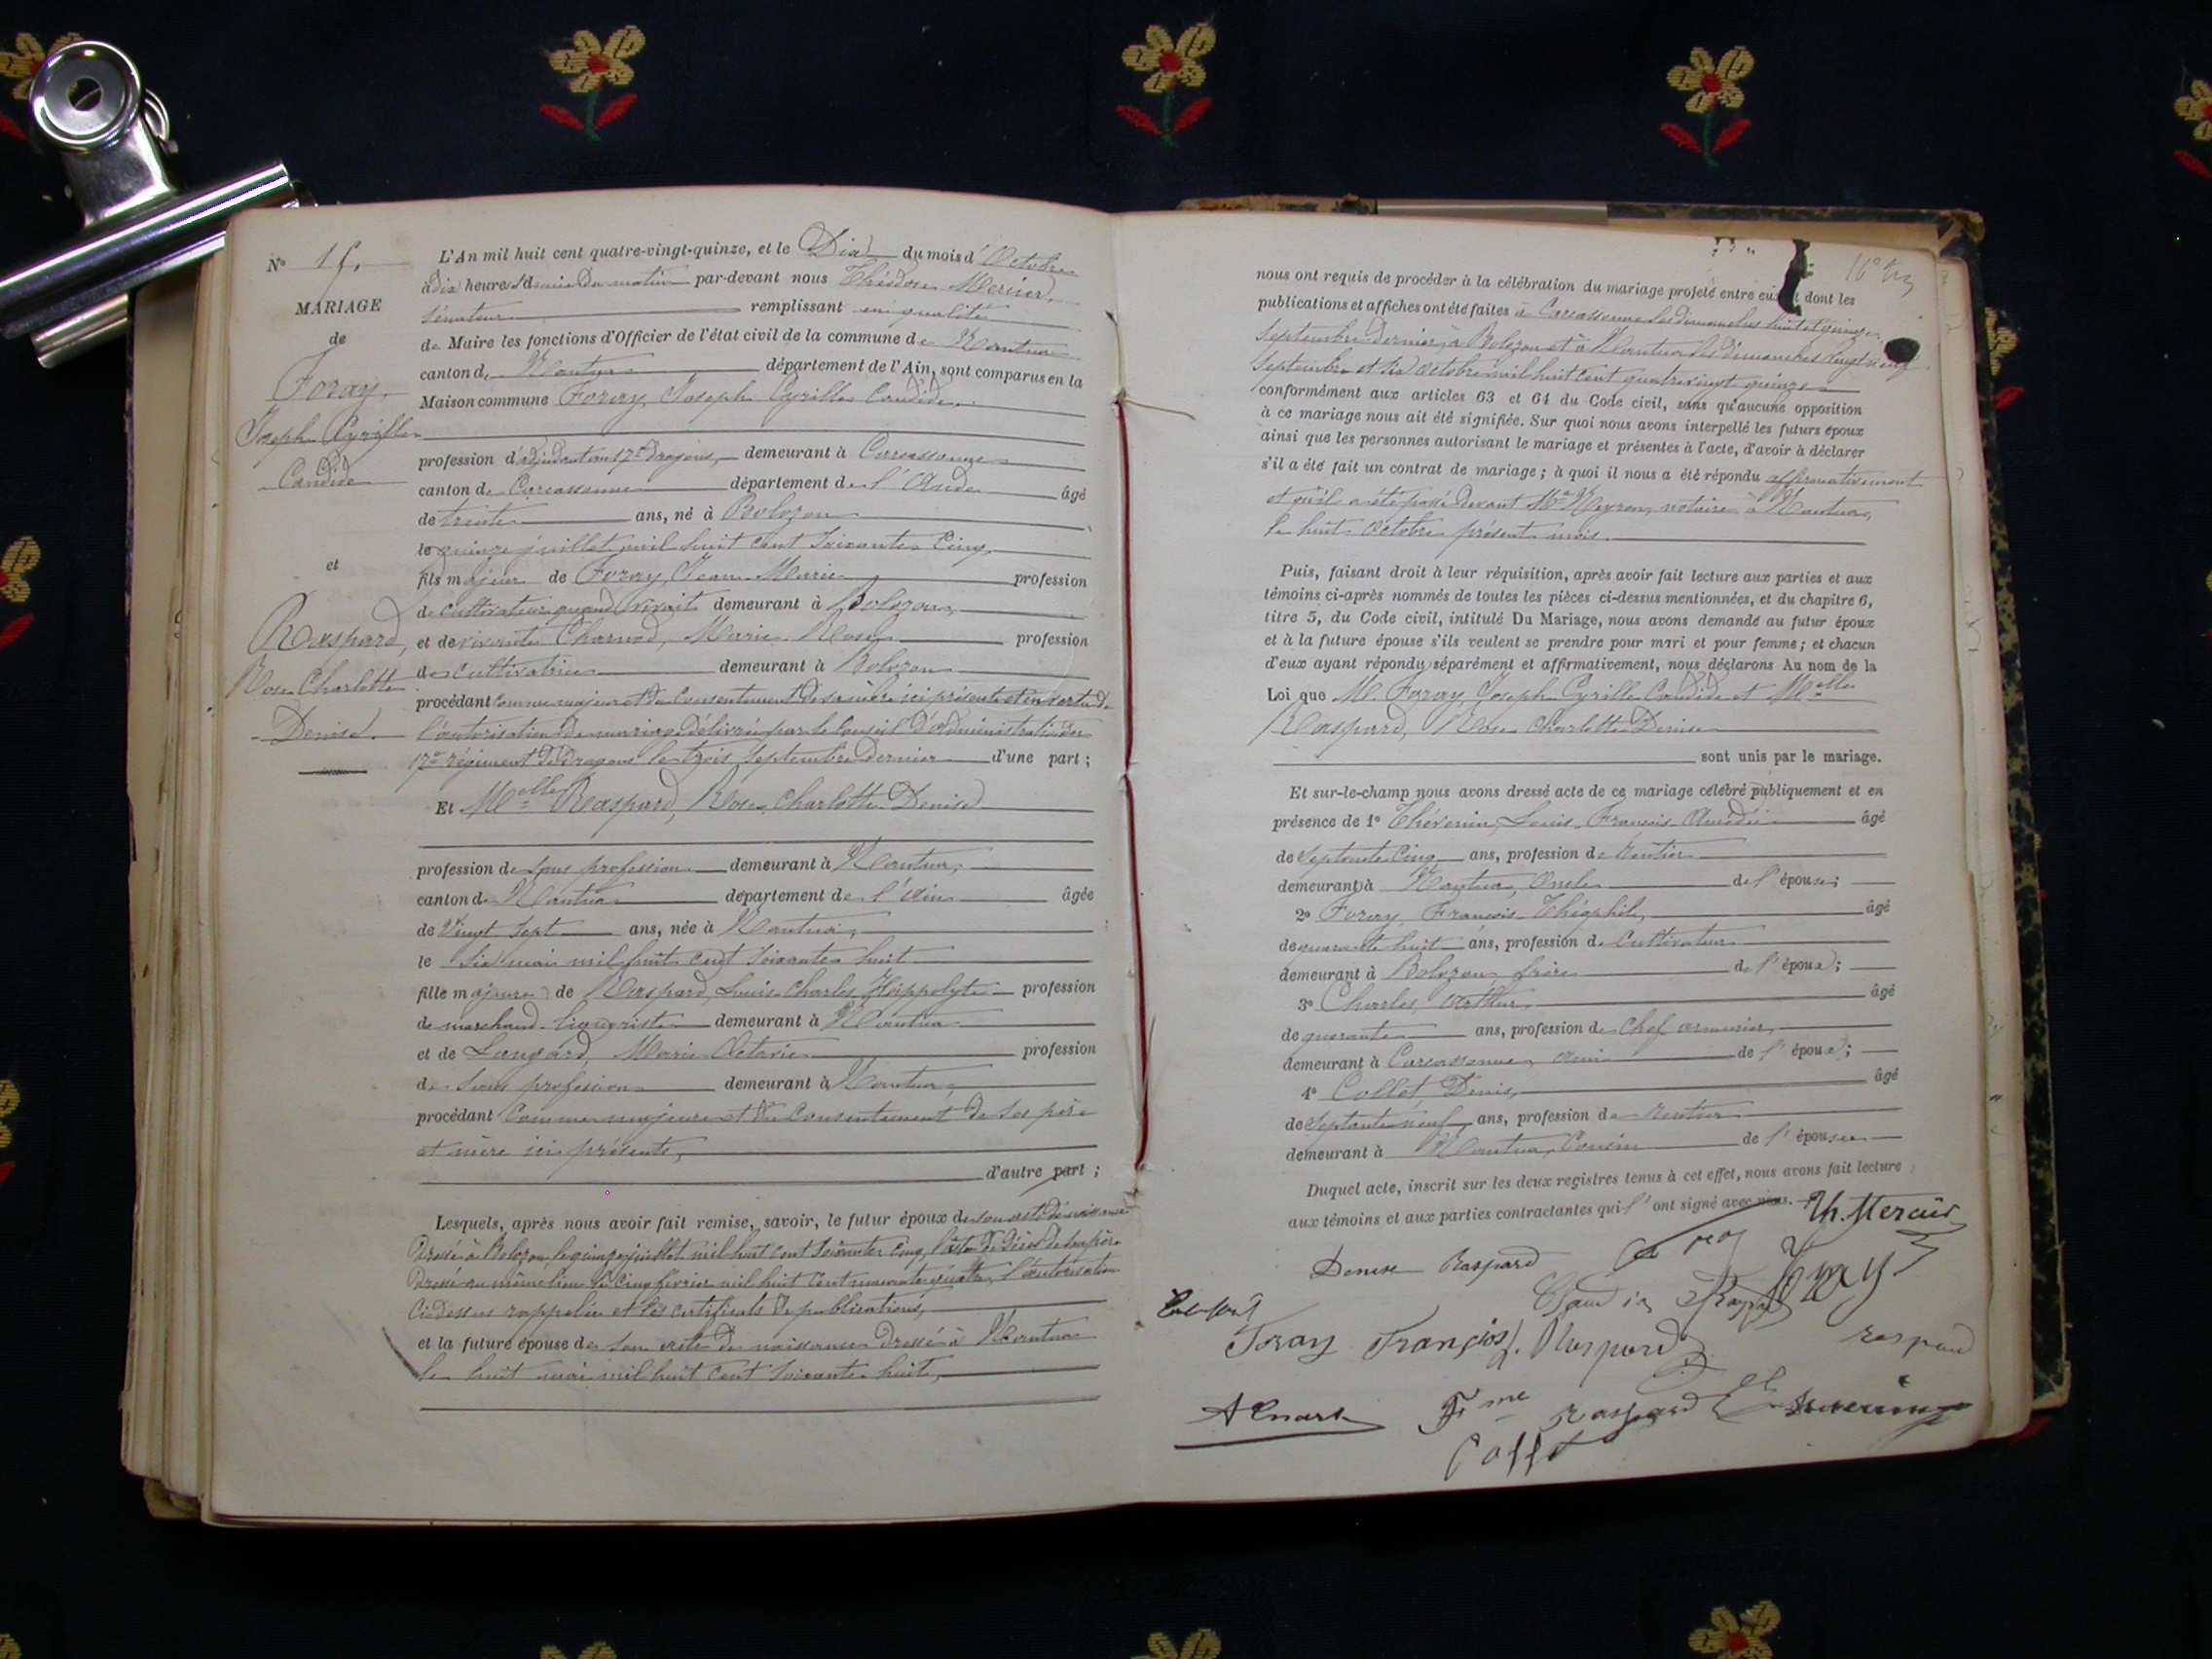 N° 15.
MARIAGE
de
Foray,
Joseph Cyrille
Candide
et
Raspard,
Rose Charlotte
Denise.
L'An mil huit cent quatre-vingt-quinze, et le Dix du mois d'Octobre
à dix heures & demie du matin par-devant nous Théodore Mercier,
sénateur remplissant en qualité
de Maire les fonctions d'Officier de l'état civil de la commune de Nantua
canton de Nantua département de l'Ain, sont comparus en la
Maison commune Foray Joseph Cyrille Candide,
profession d'adjudant au 17e dragons, demeurant à Carcassonne
canton de Carcassonne département de l'Aude âgé
de trente ans, né à Bolozon
le quinze juillet mil huit cent soixante cinq,
fils majeur de Foray, Jean Marie profession
de cultivateur quand vivait demeurant à Bolozon,
et de vivante Charnod, Marie Rose profession
de cultivatrice demeurant à Bolozon
procédant comme majeur et du consentement de sa mère ici présente et en vertu de
l'autorisation de mariage délivrée par le Conseil d'administration du
17me régiment de Dragons le trois septembre dernier d'une part ;
Et Melle Raspard, Rose Charlotte Denise
profession de sans profession demeurant à Nantua,
canton de Nantua département de l'Ain âgée
de Vingt sept ans, née à Nantua,
le six mai mil huit cent soixante huit
fille majeure de Raspard, Louis Charles Hippolyte profession
de marchand liquoriste demeurant à Nantua
et de Langard, Marie Octavie profession
de sans profession demeurant à Nantua,
procédant comme majeure et du consentement de ses père
et mère ici présents,
d'autre part ;
Lesquels, après nous avoir fait remise, savoir, le futur époux de son acte de naissance
dressé à Bolozon le quinze juillet mil huit cent soixante cinq, l'acte de décès de son père
dressé au même lieu le cinq février mil huit cent nonante quatre, l'autorisation
ci-dessus rappelée et les certificats de publications,
et la future épouse de son acte de naissance dressé à Nantua
le huit mai mil huit cent soixante huit,
nous ont requis de procéder à la célébration du mariage projeté entre eux et dont les
publications et affiches ont été faites à Carcassonne les dimanches huit et quinze
septembre dernier, à Bolozon et à Nantua les dimanches vingt neuf
septembre et six octobre mil huit cent quatre vingt quinze
conformément aux articles 63 et 64 du Code civil, sans qu'aucune opposition
à ce mariage nous ait été signifiée. Sur quoi nous avons interpellé les futurs époux
ainsi que les personnes autorisant le mariage et présentes à l'acte, d'avoir à déclarer
s'il a été fait un contrat de mariage ; à quoi il nous a été répondu affirmativement
et qu'il a été passé devant Me Neyron, notaire à Nantua,
le huit octobre présent mois.
Puis, faisant droit à leur réquisition, après avoir fait lecture aux parties et aux
témoins ci-après nommés de toutes les pièces ci-dessus mentionnées, et du chapitre 6,
titre 5, du Code civil, intitulé Du Mariage, nous avons demandé au futur époux
et à la future épouse s'ils veulent se prendre pour mari et pour femme ; et chacun
d'eux ayant répondu séparément et affirmativement, nous déclarons Au nom de la
Loi que M. Foray, Joseph Cyrille Candide et Melle
Raspard, Rose Charlotte Denise
sont unis par le mariage.
Et sur-le-champ nous avons dressé acte de ce mariage célébré publiquement et en
présence de 1° Thévenin, Louis François Amédée âgé
de septante cinq ans, profession de rentier
demeurant à Nantua, Oncle de l'épouse ;
2° Foray, François Théophile, âgé
de quarante huit ans, profession de cultivateur
demeurant à Bolozon, frère de l'époux ;
3° Charles, Arthur, âgé
de quarante ans, profession de chef armurier,
demeurant à Carcassonne, ami de l'époux ;
4° Collet Denis, âgé
de septante neuf ans, profession de rentier
demeurant à Nantua, Cousin de l'épouse
Duquel acte, inscrit sur les deux registres tenus à cet effet, nous avons fait lecture
aux témoins et aux parties contractantes qui l'ont signé avec nous.
Th. Mercier
Denise Raspard
Foray
Foray François
Raspard
raspard
Fme raspard
Collet